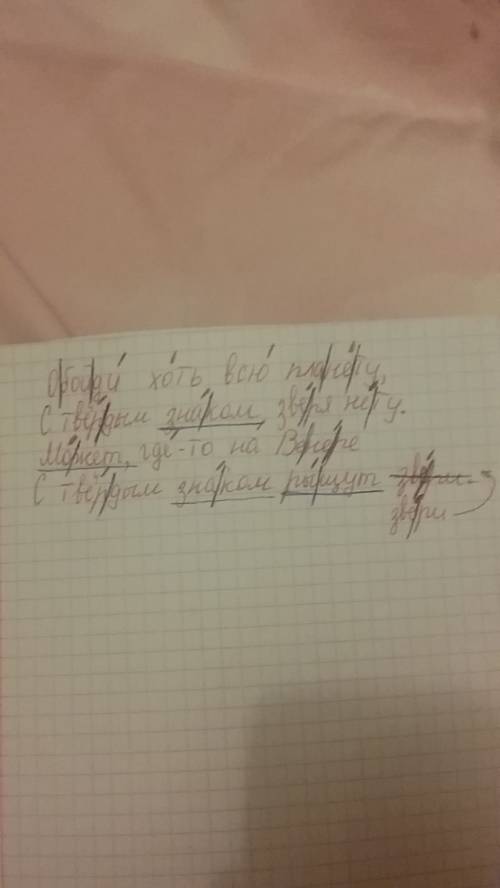 Обойди хоть всю планету,
С твёрдым знаком, зверя нету.
Может, где-то на Венере
С твёрдым знаком рыщут звери.
звери